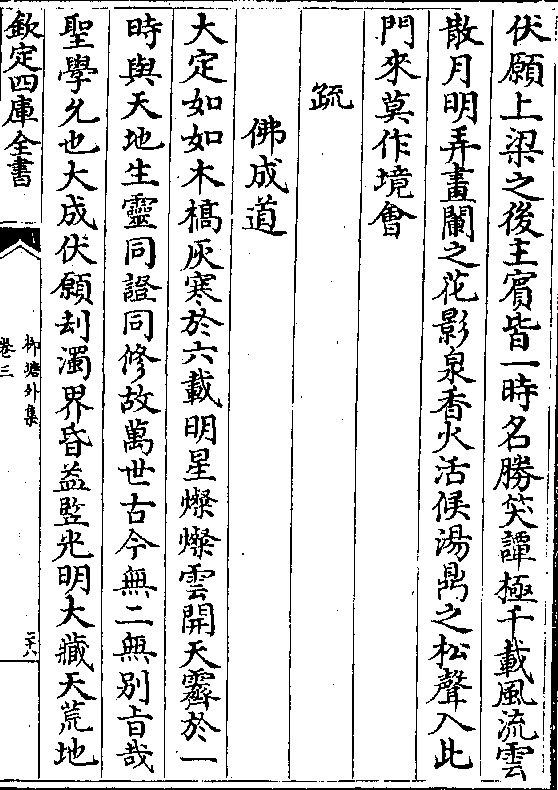 伏願上梁之後主賓皆一時名勝笑譚極千載風流雲
散月明弄畫闌之花影泉香火活候湯鼎之松聲入此
門來莫作境會
疏
佛成道
大定如如木槁灰寒於六載明星燦燦雲開天霽於一
時與天地生靈同證同修故萬世古今無二無别旨哉
聖學允也大成伏願刦濁界昏益監光明大藏天荒地
欽定四庫全書
柳塘外集
卷三
二十八